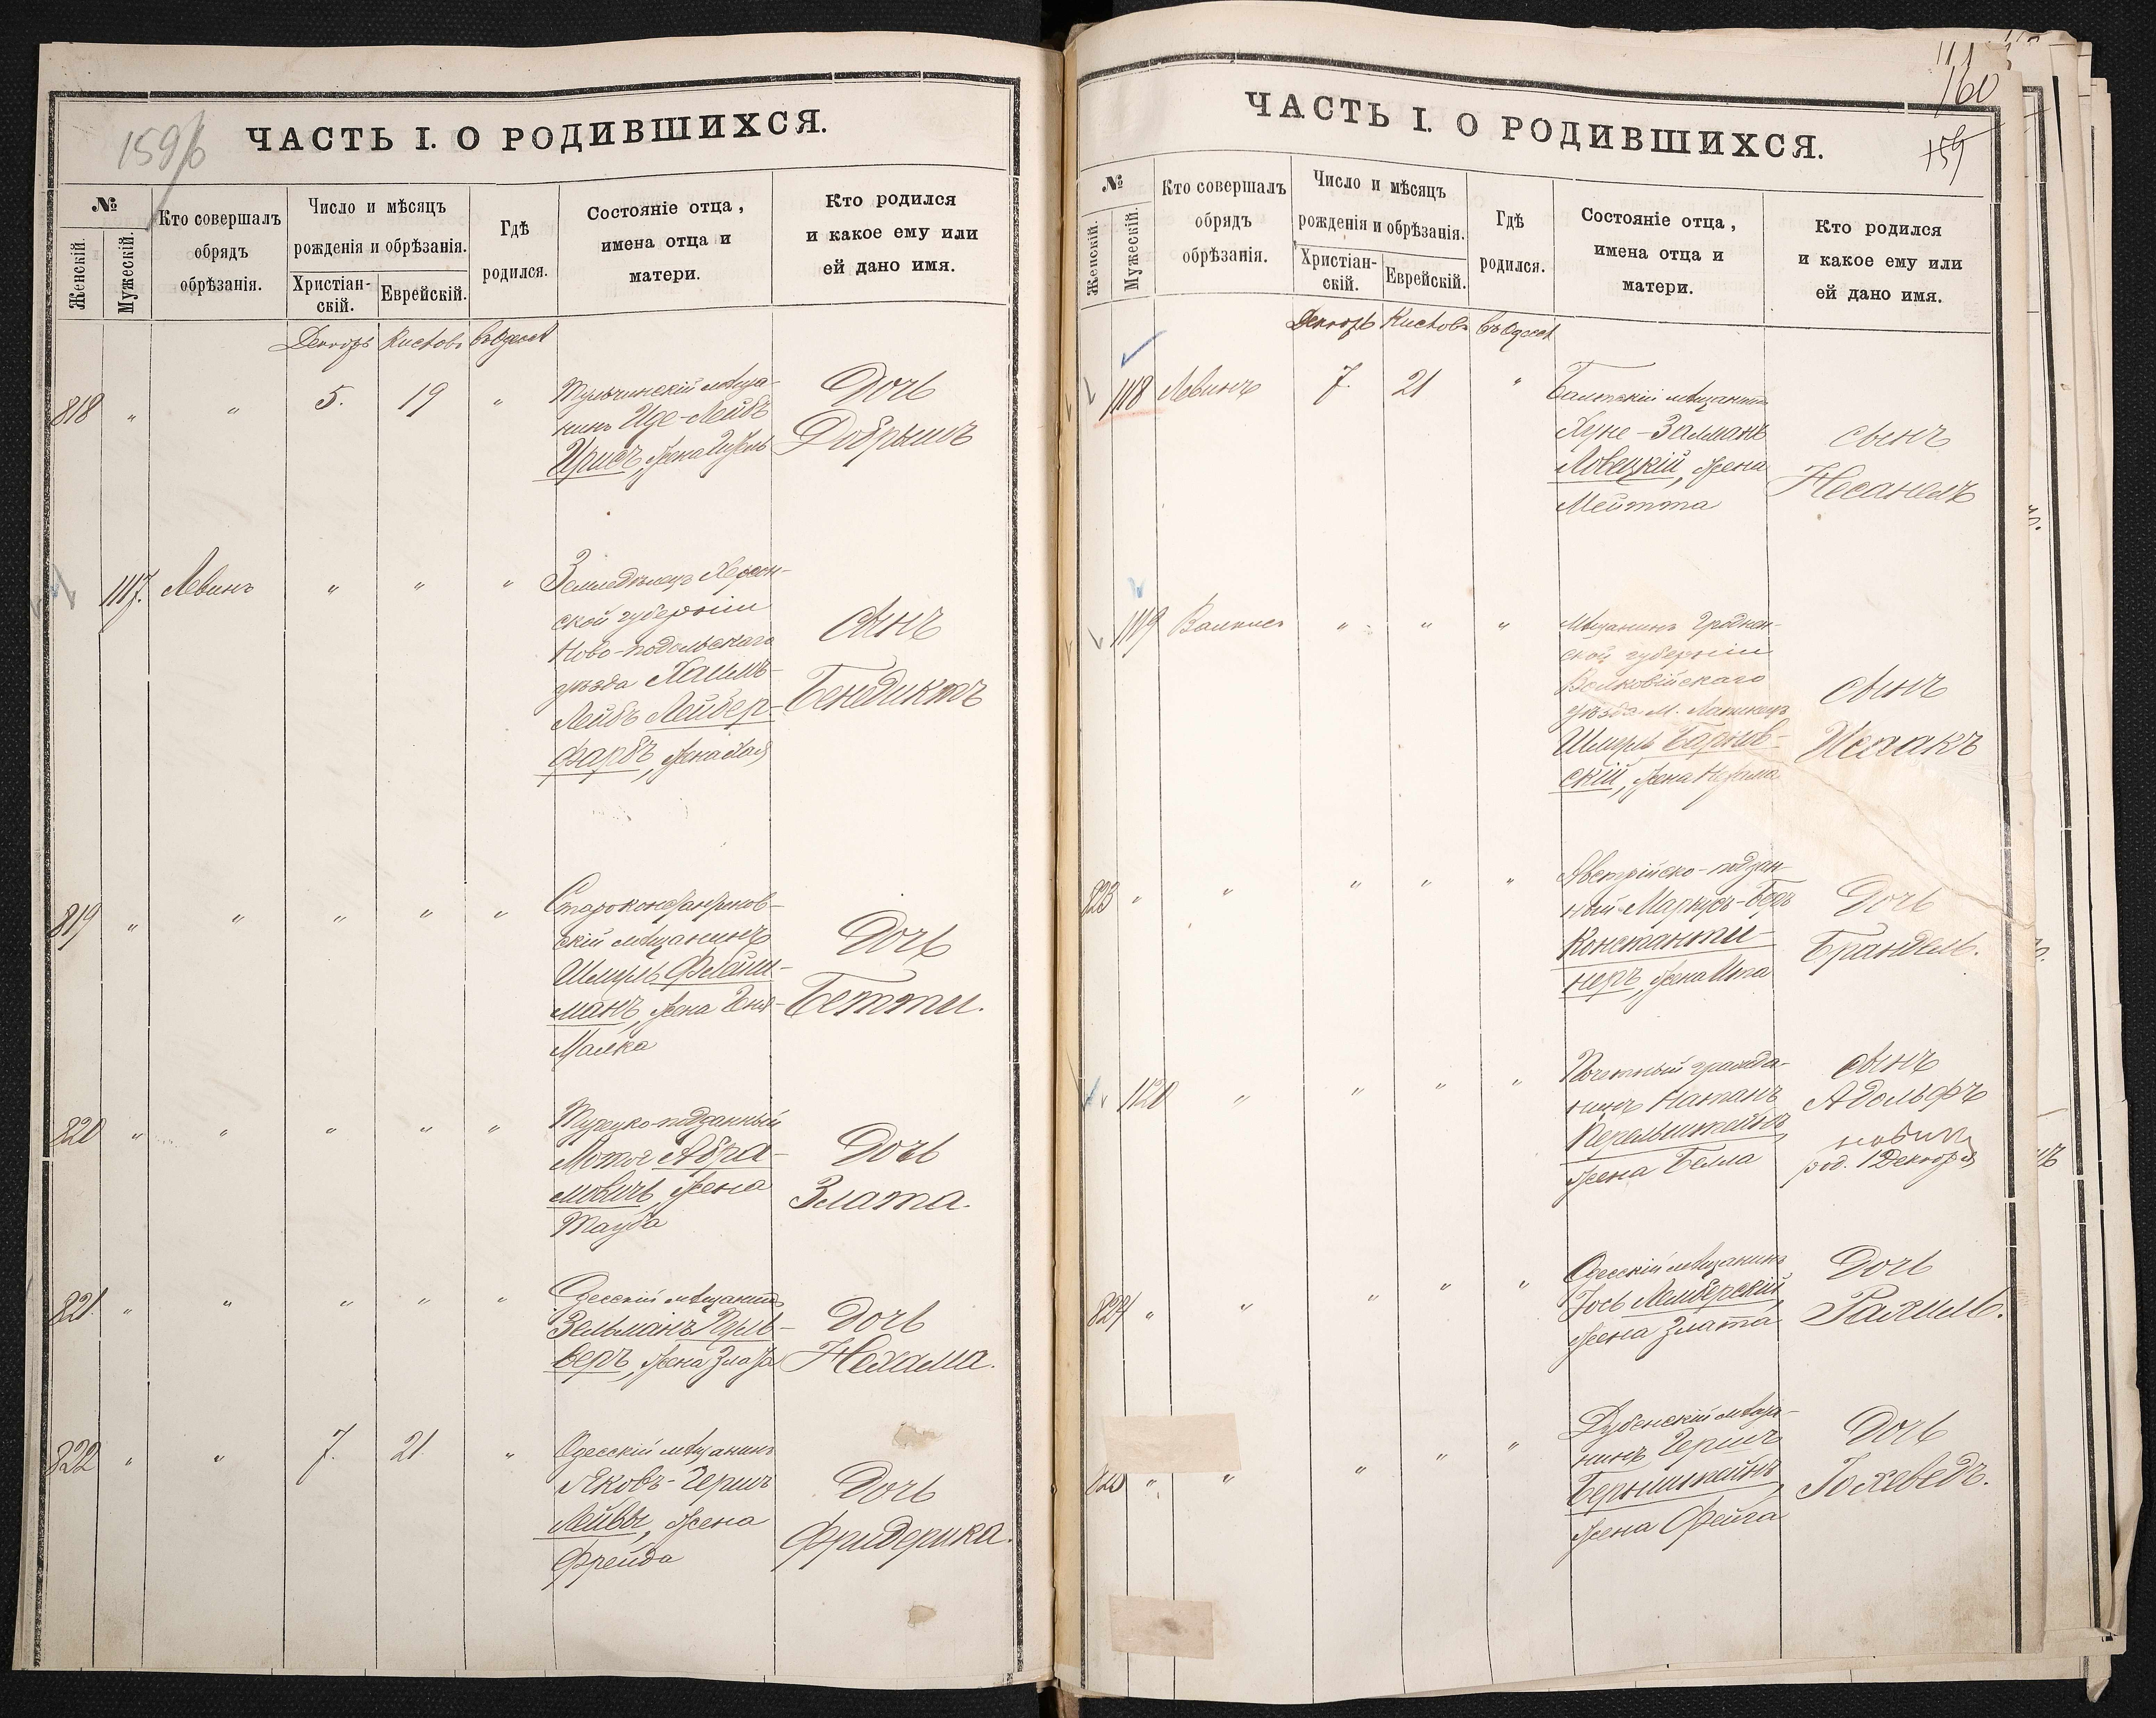 159/б
ЧАСТЬ I. О РОДИВШИХСЯ.
№
Женскій.
Мужескій.
Кто совершалъ
обрядъ
обрѣзанія.
Число и мѣсяцъ
рожденія и обрѣзанія.
Христіан-
скій.
Еврейскій.
Гдѣ
родился.
Состояніе отца,
имена отца и
матери.
Кто родился
и какое ему или
ей дано имя.
Декабрь Кислевъ Въ Одессѣ
818 " " 5. 19 "
Тульчинскій мѣща-
нинъ Иде-Лейбъ
жена
Дочь
Добрышъ
1117. Левинъ " " "
Земледѣлецъ Херсон-
ской губерніи
Ново-подольскаго
уѣзда Хаимъ-
Лейбъ Лейбер-
фарбъ, жена Хая
Сынъ
Бенедиктъ
819 " " " " "
Староконстантинов-
скій мѣщанинъ
Шмуль Флейш-
манъ, жена Геня-
Малка
Дочь
Бетти.
820 " " " " "
Турецко-подданный
Мотя Абра-
мовичъ, жена
Тауба
Дочь
Злата.
821. " " " " "
Одесскій мѣщанинъ
Зельманъ Перль-
беръ, жена Злата
Дочь
Нехама.
822 " " 7. 21 "
Одесскій мѣщанинъ
Яковъ-Гершъ
Лейвы, жена
Фрейда
Дочь
Фридерика.
160
159
ЧАСТЬ I. О РОДИВШИХСЯ.
№
Женскій.
Мужескій.
Кто совершалъ
обрядъ
обрѣзанія.
Число и мѣсяцъ
рожденія и обрѣзанія.
Христіан-
скій.
Еврейскій.
Гдѣ
родился.
Состояніе отца,
имена отца и
матери.
Кто родился
и какое ему или
ей дано имя.
Декабрь Кислевъ Въ Одессѣ
1118 Левинъ 7. 21 "
Балтскій мѣщанинъ
Хуне-Залманъ
Ловецкій, жена
Мейтта
сынъ
Несанелъ
1119 " " "
Мѣщанинъ Гроднен-
ской губерніи
Волковійскаго
уѣзда М.
Шмуль
скій, жена Нехама
сынъ
Исаакъ
823 " " " " "
Австрійско-поддан-
ный Маркусъ-Беръ
Константи-
неръ, жена Ита
Дочь
Брандель.
1120 " " " "
Почетный гражда-
нинъ Натанъ
Перельштейнъ
жена Белла
сынъ
Адольфъ
род. 1 Декабря
824 " " " " "
Одесскій мѣщанинъ
Іось Лемберскій,
жена Злата
Дочь
Рахиль.
825 " " " " "
Дубенскій мѣща-
нинъ Гершъ
Бернштейнъ,
жена Фейга
Дочь
Іохеведъ.